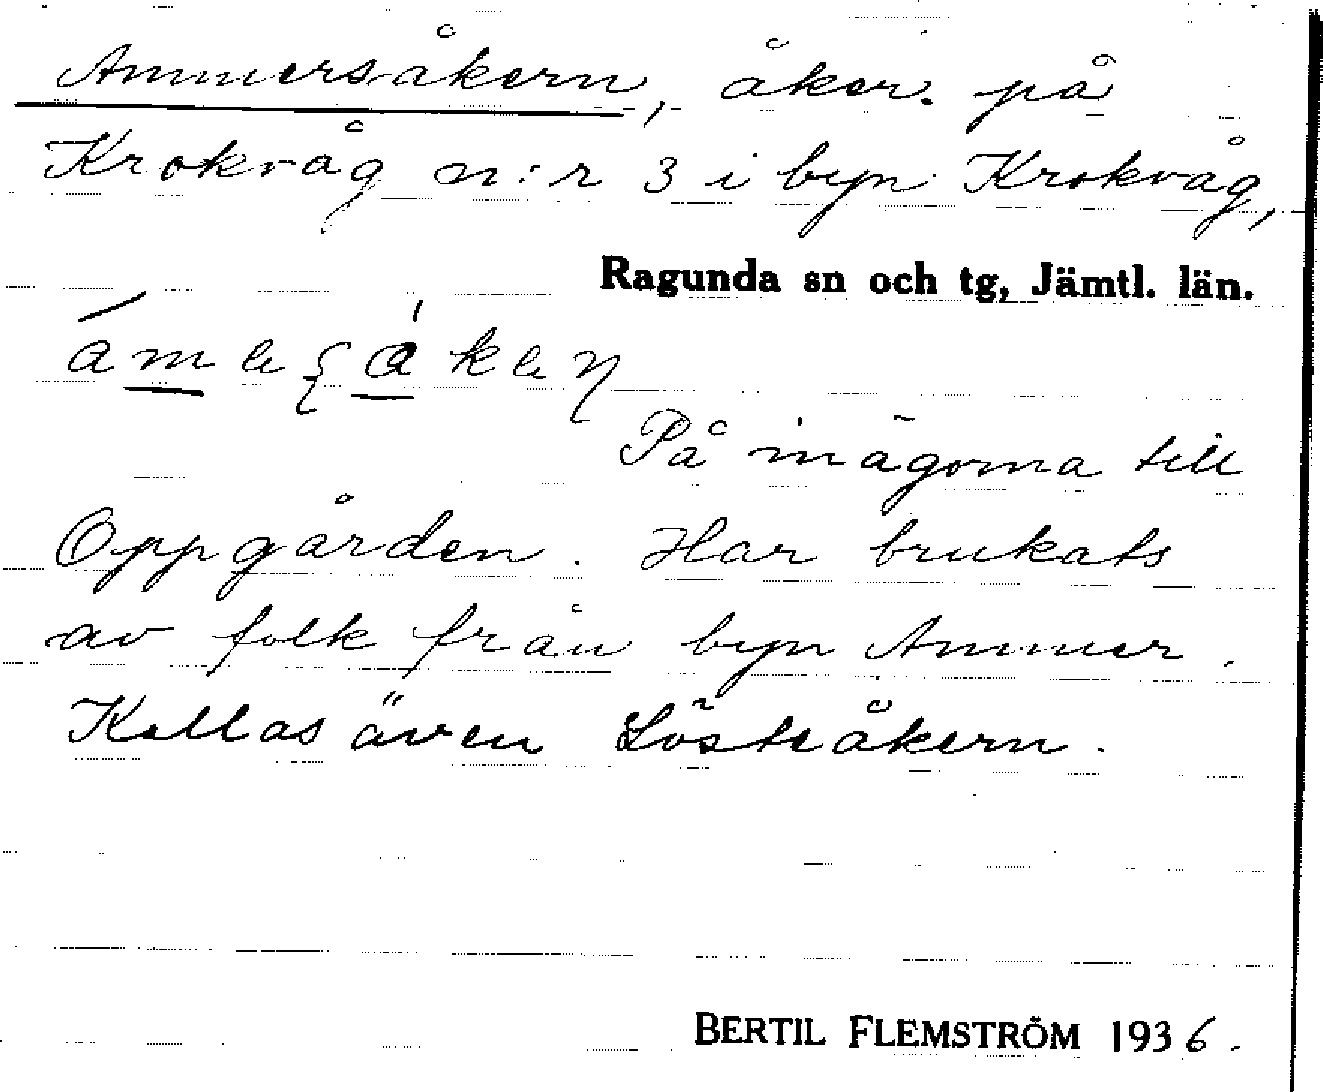 Ammersåkern, åker på
Krokvåg n:r 3 i byn Krokvåg,
Ragunda sn och tg, Jämtl. län.
På inägorna till
Oppgården. Har brukats
av folk från byn Ammer.
Kallas även Lösteåkern.
BERTIL FLEMSTRÖM 1936.